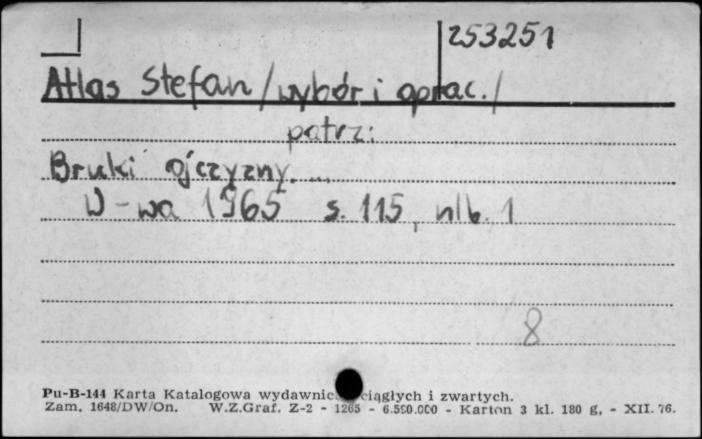 253251
Atlas Stefan /wybór i oprac./
patrz:
Bruki ojczyzny....
W-wa 1965 s. 115, nlb. 1
8
Pu-B-144 Karta Katalogowa ciągłych i zwartych.
Zam. 1648/DW/On. W.Z.Graf. Z-2 - 1265 - 6.500.000 - Karton 3 kl. 180 g. - XII. 76.